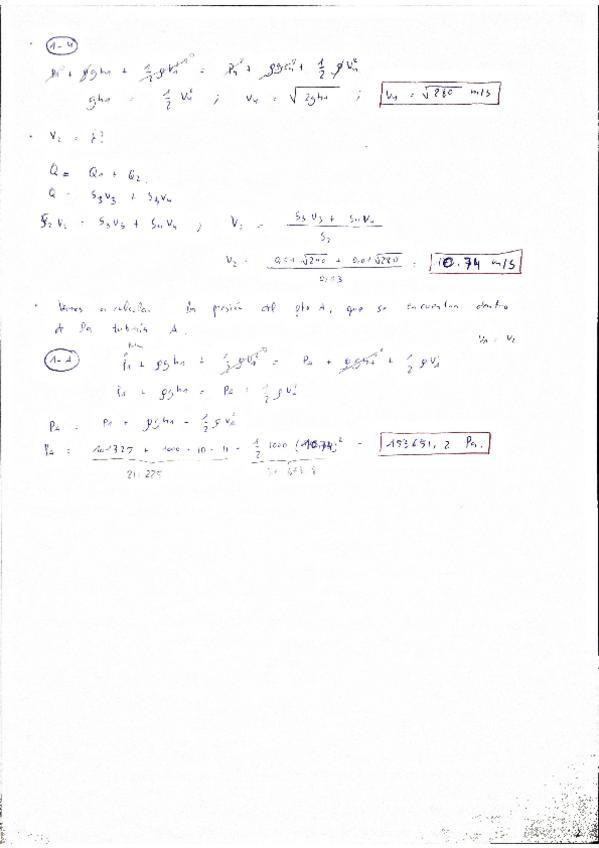 1-4
P₁ + ρgh₁ + 1/2 ρV₁² = P₄ + ρgh₄ + 1/2 ρV₄²
gh₁ = 1/2 V₄² ; V₄ = √2gh₁ ; V₄ = √280 m/s
· V₂ = ¿?
Q = Q₁ + Q₂
Q = S₃V₃ + S₄V₄
S₂V₂ = S₃V₃ + S₄V₄ ; V₂ = S₃V₃ + S₄V₄ / S₂
V₂ = √240 + 0,01√280 / = 10.74 m/s
· Vamos a calcular la presión del pto A, que se encuentra dentro
de la tubería A. V₂
P₁ + ρgh₁ + 1/2 ρV₁² = PA + + 1/2 ρV²
P₁ + ρgh₁ = PA + 1/2 ρV²
PA = P₁ + ρgh₁ - 1/2 ρV²
PA = + 1000 · 10 · - 1/2 1000 (10.74)² = 153651,2 Pa.
2